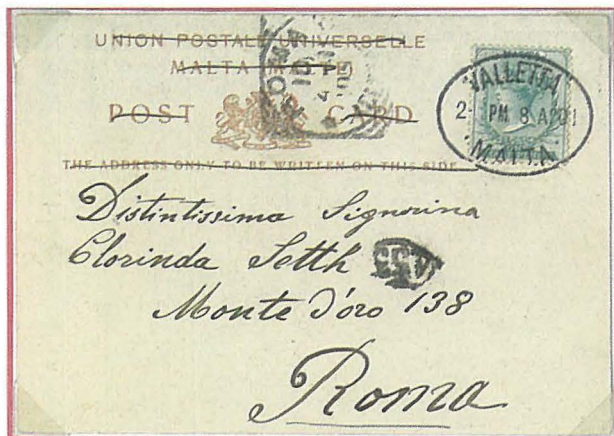 UNION POSTALE UNIVERSELLE
MALTA (MALTE)
POST CARD
THE ADDRESS ONLY TO BE WRITTEN ON THIS SIDE
VALLETTA
2- PM 8 AP01
MALTA
Distintissima Signorina
Clorinda Setth
Monte d'oro 138
Roma